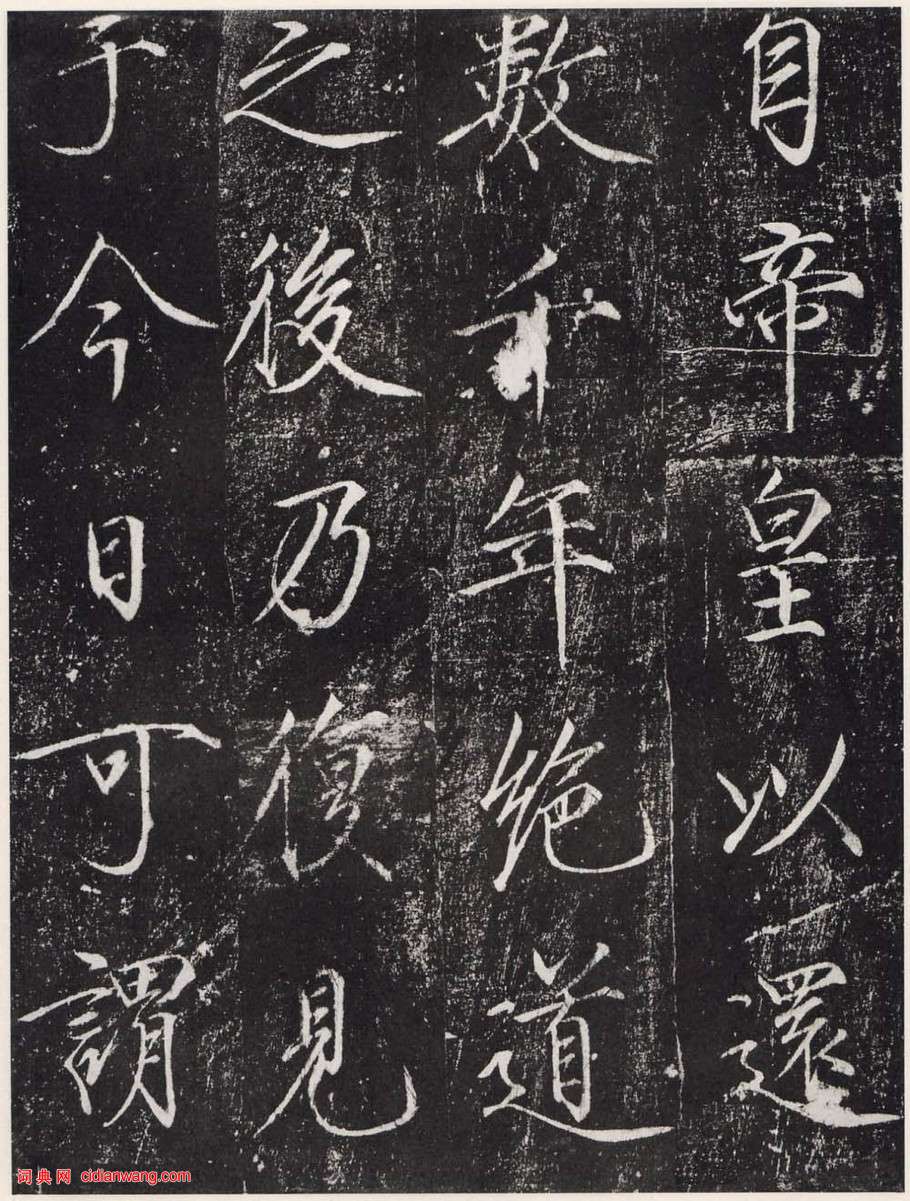 自帝皇以還
數千年絶道
之後乃復見
于今日可謂
词典网 cidianwang.com